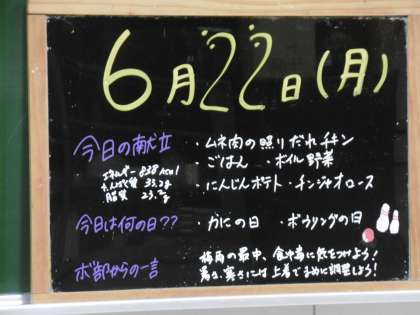 6月22日(月)
今日の献立
・ムネ肉の照りだれチキン
・ごはん ・ボイル野菜
・にんじんポテト・チンジャオロース
エネルギー 838 kcal
たんぱく質 35.2g
脂質 23.2g
今日は何の日?? ・かにの日 ・ボウリングの日
ボ部からの一言
梅雨の最中、食中毒に気をつけよう!
暑さ、寒さには上着でまめに調整しよう!